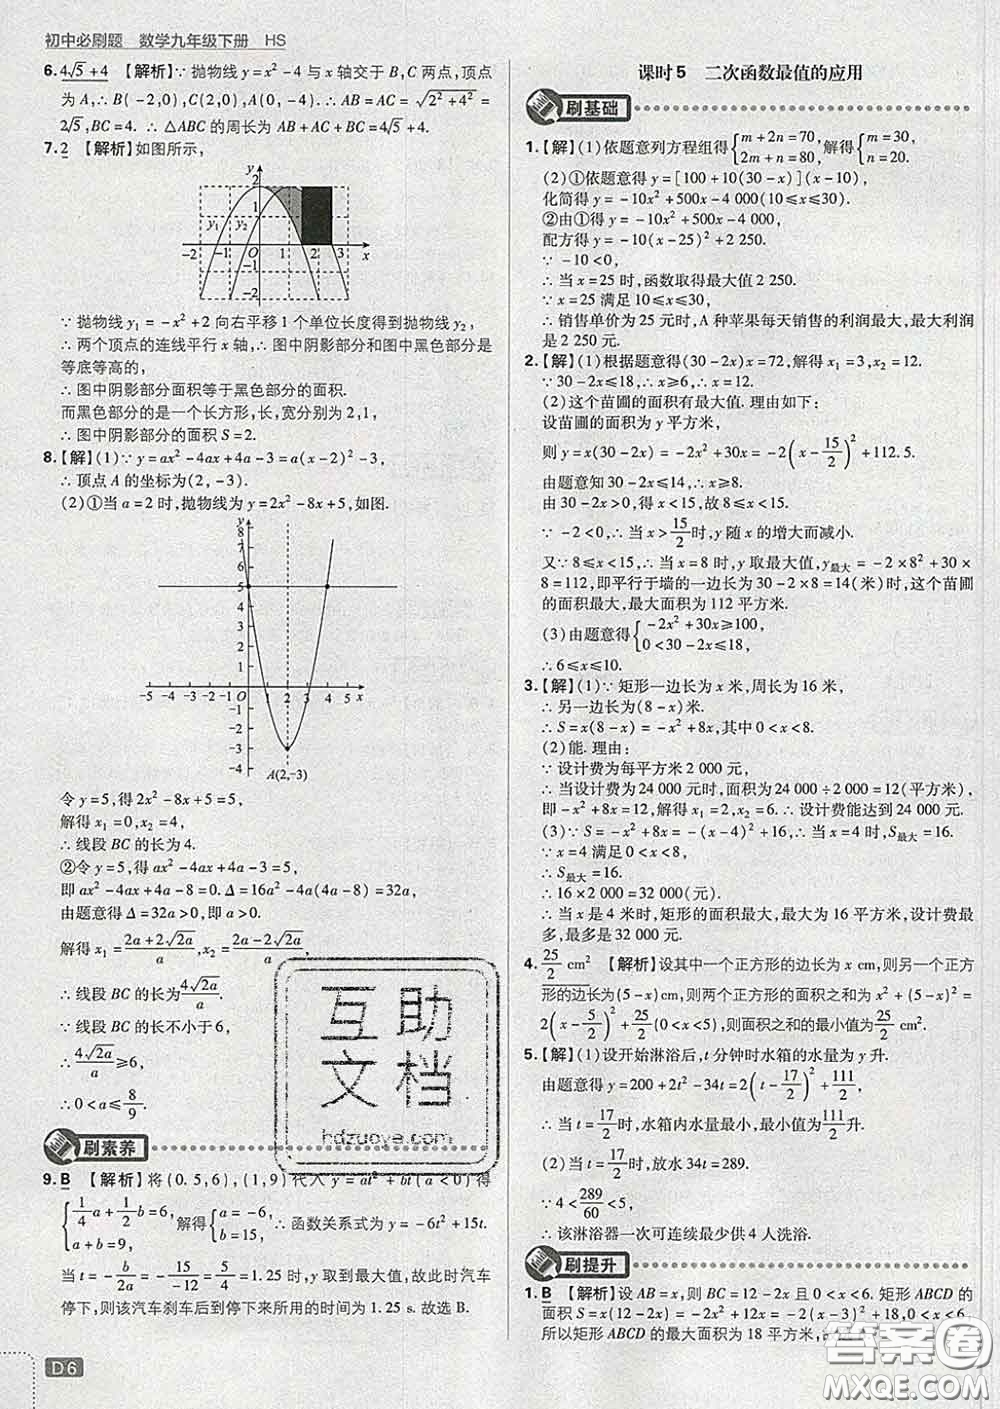 初中必刷题　数学九年级下册　HS
6. 4√5+4 【解析】∵ 抛物线 y=x²-4 与 x 轴交于 B,C 两点,顶点
为 A,∴ B(-2,0),C(2,0),A(0,-4).∴ AB=AC=√(2²+4²)=
2√5,BC=4. ∴ △ABC 的周长为 AB+AC+BC=4√5+4.
7. 2 【解析】如图所示,
y
2
1
y₁ y₂
-2 -1 O 1 2 3 x
-1
-2
∵ 抛物线 y₁=-x²+2 向右平移 1 个单位长度得到抛物线 y₂,
∴ 两个顶点的连线平行 x 轴,∴ 图中阴影部分和图中黑色部分是
等底等高的,
∴ 图中阴影部分面积等于黑色部分的面积.
而黑色部分的是一个长方形,长,宽分别为 2,1,
∴ 图中阴影部分的面积 S=2.
8.【解】(1)∵ y=ax²-4ax+4a-3=a(x-2)²-3,
∴ 顶点 A 的坐标为(2,-3).
(2)①当 a=2 时,抛物线为 y=2x²-8x+5,如图.
y
8
7
6
5
4
3
2
1
-5 -4 -3 -2 -1 O 1 2 3 4 5 x
-1
-2
-3
-4
A(2,-3)
令 y=5,得 2x²-8x+5=5,
解得 x₁=0,x₂=4,
∴ 线段 BC 的长为 4.
②令 y=5,得 ax²-4ax+4a-3=5,
即 ax²-4ax+4a-8=0.Δ=16a²-4a(4a-8)=32a,
由题意得 Δ=32a>0,即 a>0.
解得 x₁=(2a+2√(2a))/a,x₂=(2a-2√(2a))/a,
∴ 线段 BC 的长为 4√(2a)/a.
∵ 线段 BC 的长不小于 6,
∴ 4√(2a)/a≥6,
∴ 0<a≤8/9.
刷素养
9. B 【解析】将(0.5,6),(1,9)代入 y=at²+bt(a<0)得
{1/4 a+1/2 b=6, a+b=9, 解得{a=-6, b=15, ∴ 函数关系式为 y=-6t²+15t.
当 t=-b/2a=-15/-12=1.25 时,y 取到最大值,故此时汽车
停下,则该汽车刹车后到停下来所用的时间为 1.25 s. 故选 B.
D6
课时 5　二次函数最值的应用
刷基础
1.【解】(1)依题意列方程组得{m+2n=70, 2m+n=80, 解得{m=30, n=20.
(2)①依题意得 y=[100+10(30-x)](x-10),
化简得 y=-10x²+500x-4 000(10≤x≤30).
②由①得 y=-10x²+500x-4 000,
配方得 y=-10(x-25)²+2 250.
∵ -10<0,
∴ 当 x=25 时,函数取得最大值 2 250.
∵ x=25 满足 10≤x≤30,
∴ 销售单价为 25 元时,A 种苹果每天销售的利润最大,最大利润
是 2 250 元.
2.【解】(1)根据题意得(30-2x)x=72,解得 x₁=3,x₂=12.
∵ 30-2x≤18,∴ x≥6,∴ x=12.
(2)这个苗圃的面积有最大值. 理由如下:
设苗圃的面积为 y 平方米,
则 y=x(30-2x)=-2x²+30x=-2(x-15/2)²+112.5.
由题意知 30-2x≤14,∴ x≥8.
由 30-2x>0,得 x<15,故 8≤x<15.
∵ -2<0,∴ 当 x>15/2 时,y 随 x 的增大而减小.
又∵ 8≤x<15,∴ 当 x=8 时,y 取最大值,y最大=-2×8²+30
×8=112,即平行于墙的一边长为 30-2×8=14(米)时,这个苗圃
的面积最大,最大面积为 112 平方米.
(3)由题意得{-2x²+30x≥100, 0<30-2x≤18,
∴ 6≤x≤10.
3.【解】(1)∵ 矩形一边长为 x 米,周长为 16 米,
∴ 另一边长为(8-x)米.
∴ S=x(8-x)=-x²+8x,其中 0<x<8.
(2)能. 理由:
∵ 设计费为每平方米 2 000 元,
∴ 当设计费为 24 000 元时,面积为 24 000÷2 000=12(平方米),
即-x²+8x=12,解得 x₁=2,x₂=6. ∴ 设计费能达到 24 000 元.
(3)∵ S=-x²+8x=-(x-4)²+16,∴ 当 x=4 时,S最大=16.
∵ x=4 满足 0<x<8,
∴ S最大=16.
∴ 16×2 000=32 000(元),
∴ 当 x 是 4 米时,矩形的面积最大,最大为 16 平方米,设计费最
多,最多是 32 000 元.
4. 25/2 cm² 【解析】设其中一个正方形的边长为 x cm,则另一个正
方形的边长为(5-x)cm,则两个正方形的面积之和为 x²+(5-x)²=
2(x-5/2)²+25/2(0<x<5),则面积之和的最小值为25/2 cm².
5.【解】(1)设开始淋浴后,t 分钟时水箱的水量为 y 升.
由题意得 y=200+2t²-34t=2(t-17/2)²+111/2,
∴ 当 t=17/2时,水箱内水量最少,为111/2升.
(2)当 t=17/2时,放水量为 34t=289.
∵ 4<289/60<5,
∴ 该淋浴器一次可连续最少供 4 人洗浴.
刷提升
1. B 【解析】设 AB=x,则 BC=12-2x 且 0<x<6. 矩形 ABCD 的
面积 S=x(12-2x)=-2x²+12x=-2(x-3)²+18,0<x<6.
所以矩形 ABCD 的最大面积为 18 平方米,
互助
文档
hdzuoye.com
答案圈
MXQE.COM